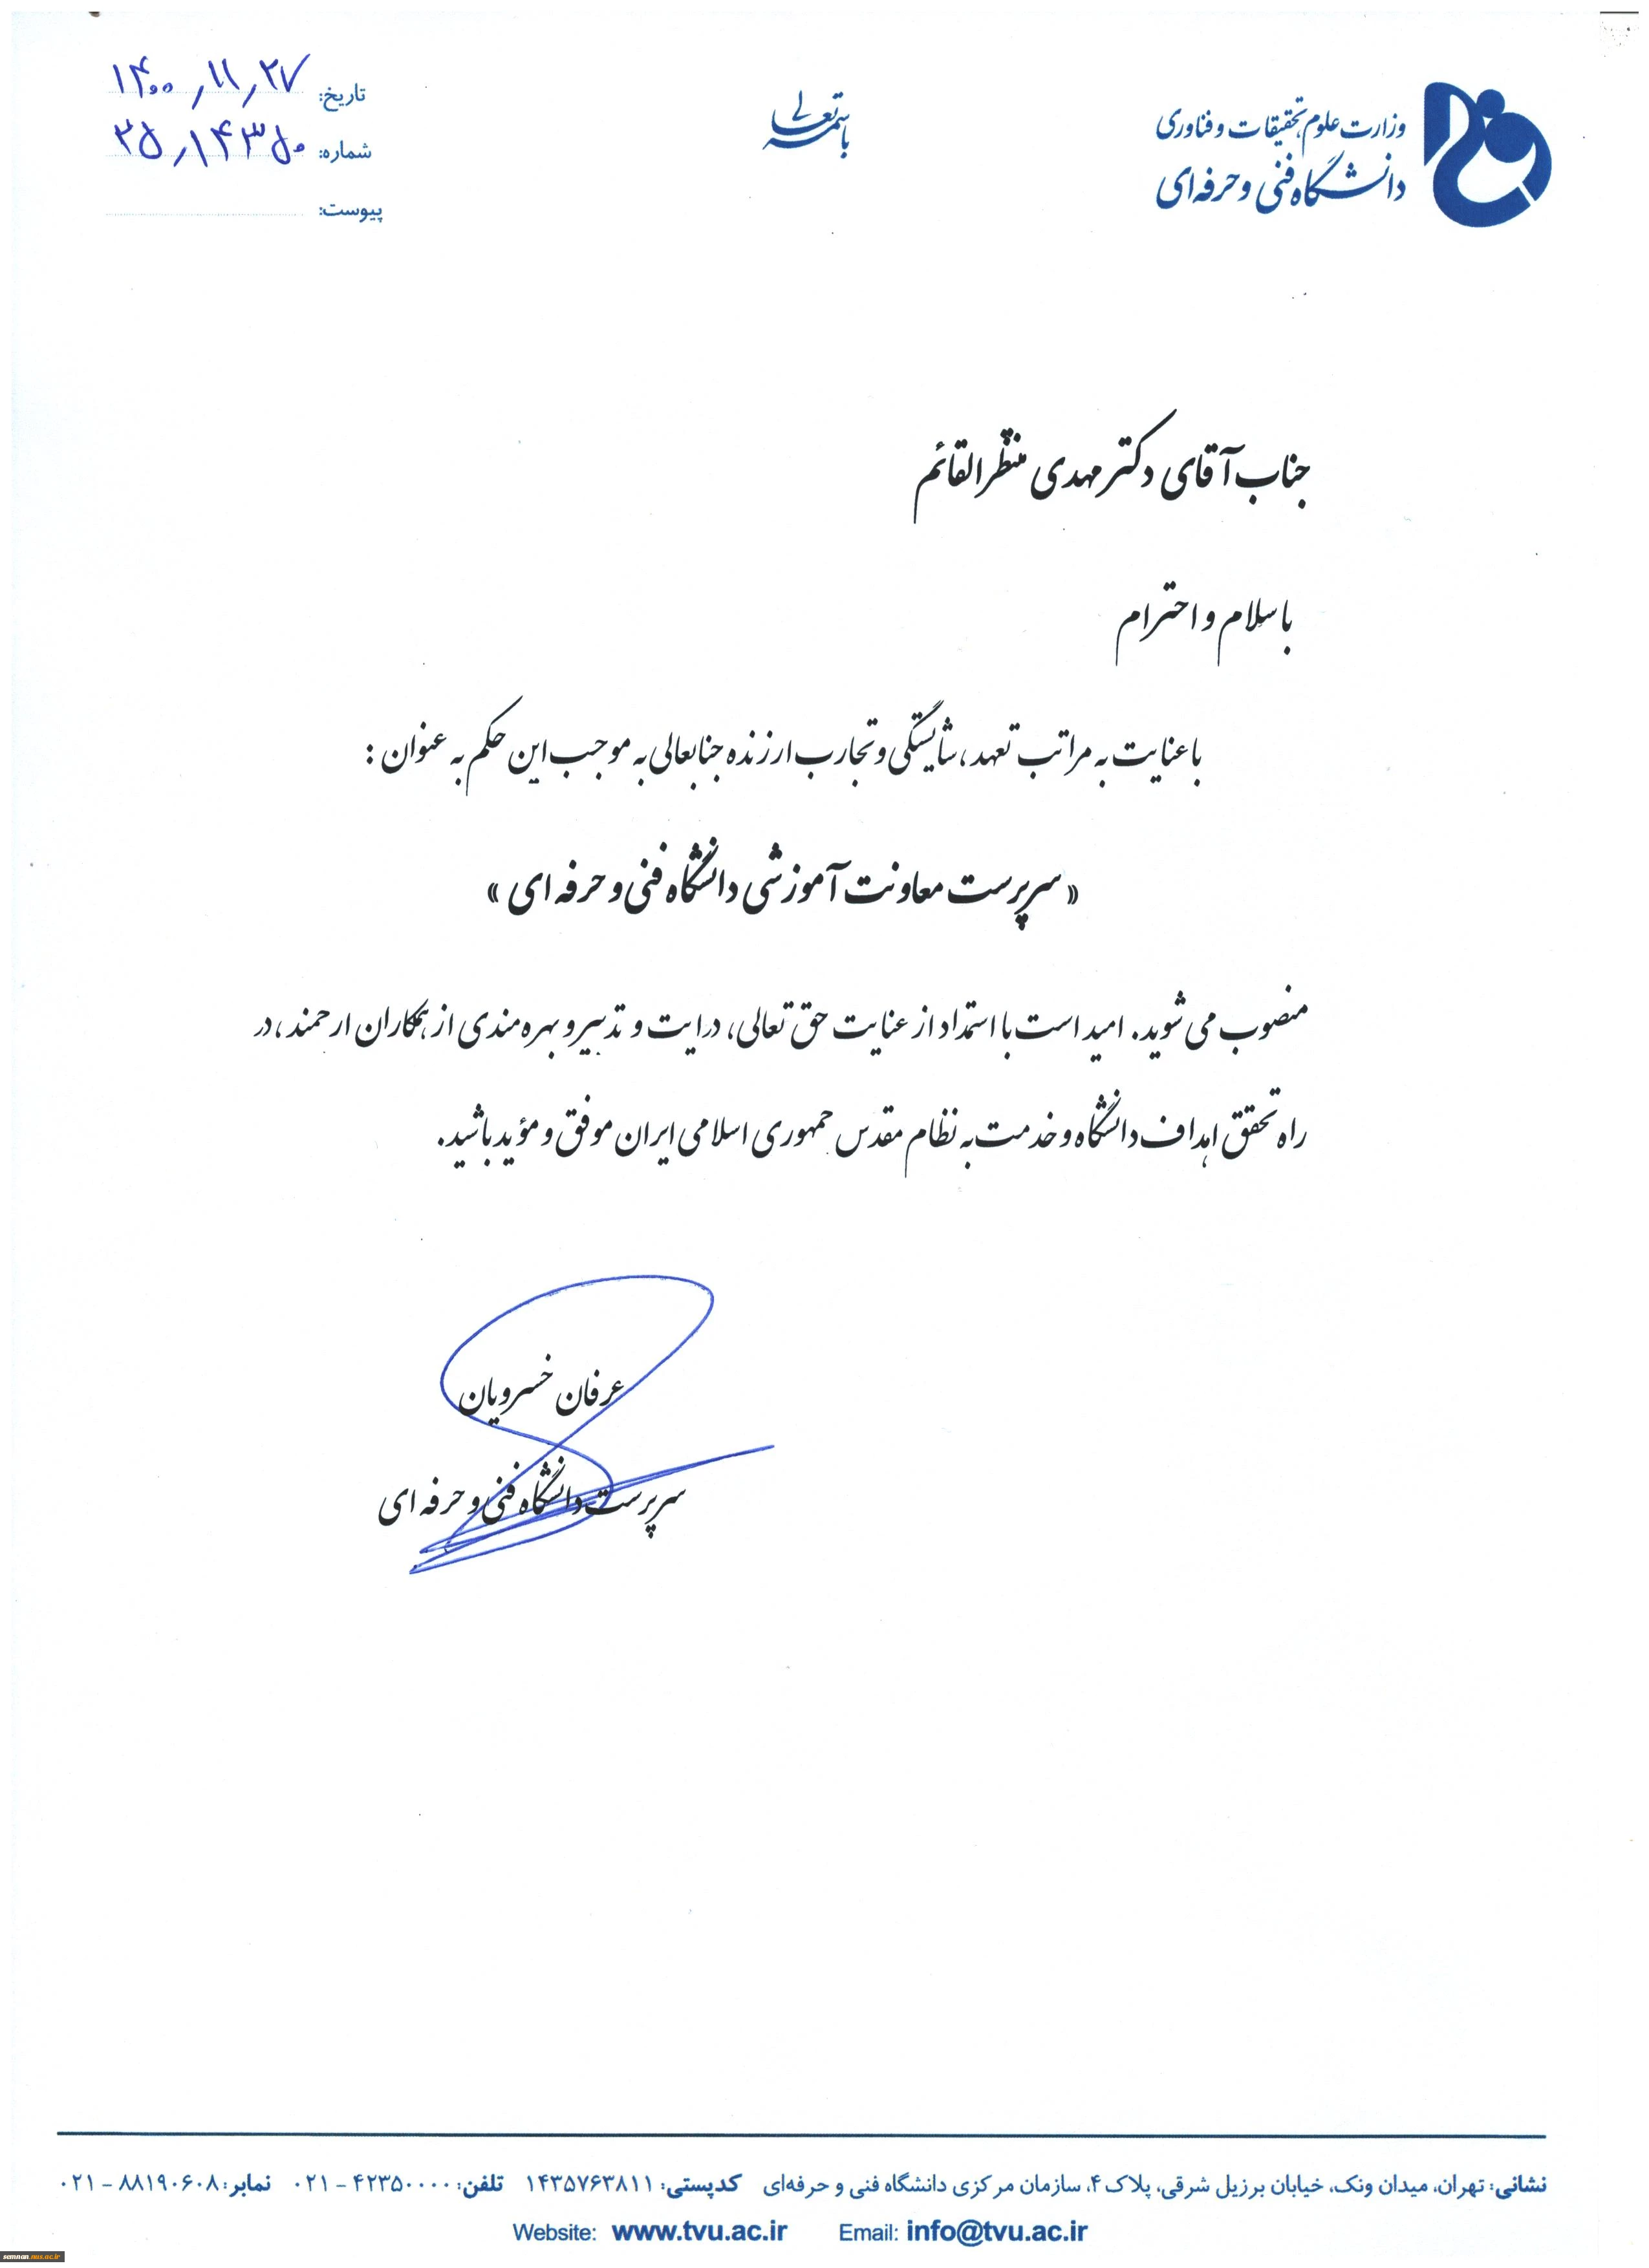 وزارت علوم، تحقیقات و فناوری
دانشگاه فنی و حرفه‌ای
باسمه تعالی
تاریخ: ۱۴۰۰/۱۱/۲۷
شماره: ۲۵/۱۴۳۵۰
پیوست:
جناب آقای دکتر مهدی منتظرالقائم
با سلام و احترام
با عنایت به مراتب تعهد، شایستگی و تجارب ارزنده جنابعالی به موجب این حکم به عنوان :
« سرپرست معاونت آموزشی دانشگاه فنی و حرفه ای »
منصوب می شوید. امید است با استمداد از عنایت حق تعالی، درایت و تدبیر و بهره مندی از همکاران ارجمند، در
راه تحقق اهداف دانشگاه و خدمت به نظام مقدس جمهوری اسلامی ایران موفق و مؤید باشید.
عرفان خسرویان
سرپرست دانشگاه فنی و حرفه ای
نشانی: تهران، میدان ونک، خیابان برزیل شرقی، پلاک ۴، سازمان مرکزی دانشگاه فنی و حرفه‌ای کدپستی: ۱۴۳۵۷۶۳۸۱۱ تلفن: ۴۲۳۵۰۰۰۰ - ۰۲۱ نمابر: ۸۸۱۹۰۶۰۸ - ۰۲۱
Website: www.tvu.ac.ir Email: info@tvu.ac.ir
semnan.nus.ac.ir